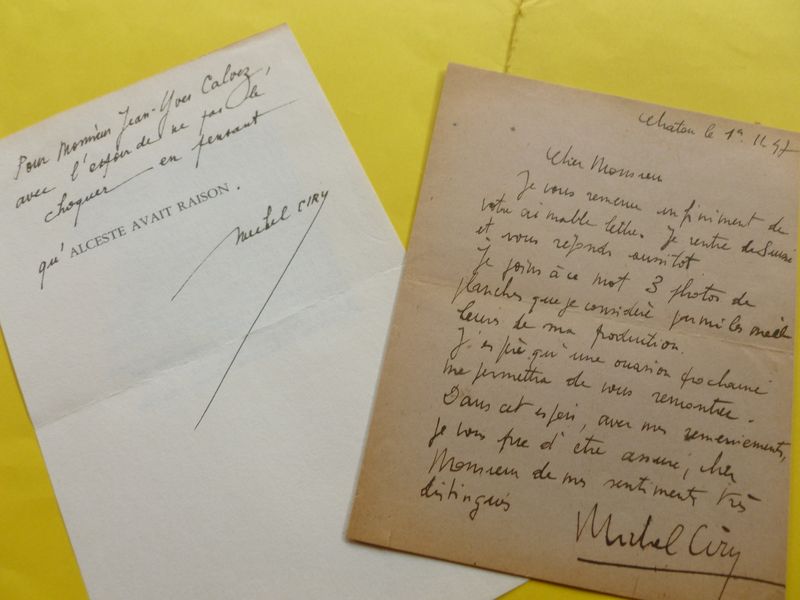 Pour Monsieur Jean-Yves Calvez,
avec l'espoir de ne pas le
choquer en pensant
qu' ALCESTE AVAIT RAISON.
Michel CIRY
Chatou le 1er 11 47
Cher Monsieur
Je vous remercie infiniment de
votre aimable lettre. Je rentre de Suisse
et vous réponds aussitôt
Je joins à ce mot 3 photos de
planches que je considère parmi les meil
leurs de ma production.
J'espère qu'une occasion prochaine
me permettra de vous rencontrer.
Dans cet espoir, avec mes remerciements,
je vous prie d'être assuré, cher
Monsieur de mes sentiments très
distingués
Michel Ciry